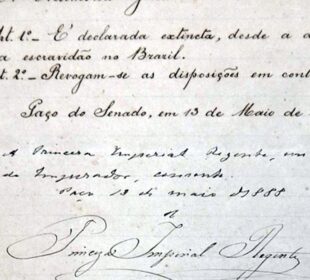 Art. 1º - É declarada extincta, desde a
a escravidão no Brazil.
Art. 2º - Revogam-se as disposições em cont
Paço do Senado, em 13 de Maio de
A Princeza Imperial Regente, em
do Imperador, consente.
Paço 13 de maio de 1888
Princeza Imperial Regente